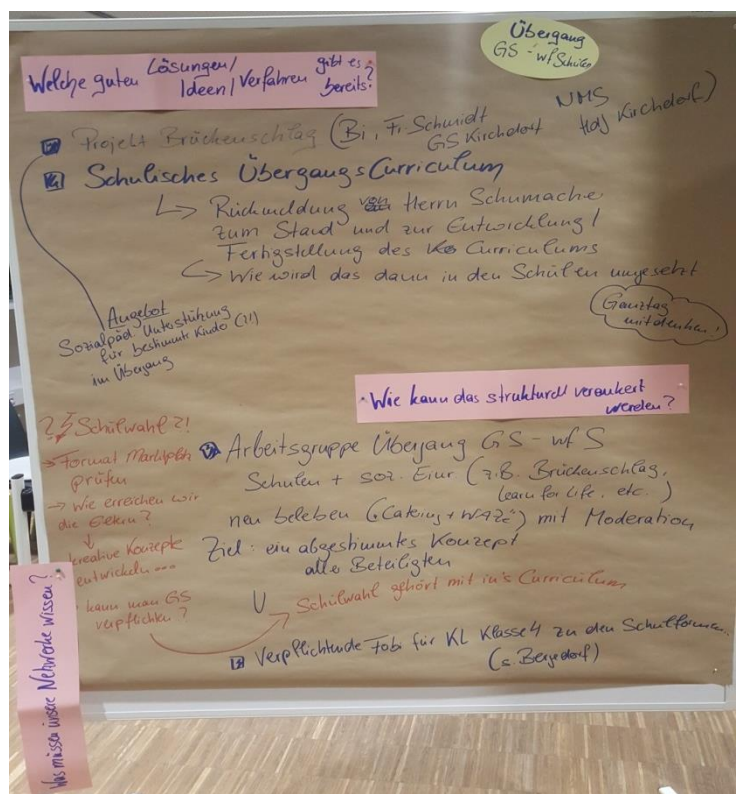 Übergang
GS - wf Schulen
Welche guten Lösungen/
Ideen/Verfahren gibt es
bereits?
Projekt Brückenschlag (Bi, Fr. Schmidt
GS Kirchdorf
NMS
Kirchdorf)
Schulisches ÜbergangsCurriculum
Rückmeldung von Herrn Schumache
zum Stand und zur Entwicklung/
Fertigstellung des Curriculums
Wie wird das dann in den Schulen umgesetzt
Ganztag
mitdenken!
Angebot
Sozialpäd. Unterstützung
für bestimmte Kinder (!!)
im Übergang
Wie kann das strukturell verankert
werden?
?! Schulwahl ?!
→ Format Marktplatz
prüfen
→ Wie erreichen wir
die Eltern?
↓
kreative Konzepte
entwickeln...
kann man GS
verpflichten?
Arbeitsgruppe Übergang GS - wf S
Schulen + soz. Einr (z.B. Brückenschlag,
learn for life, etc.)
neu beleben ("Catering + WAZe") mit Moderation
Ziel: ein abgestimmtes Konzept
aller Beteiligten
Schulwahl gehört mit in's Curriculum
Verpflichtende Fobi für KL Klasse 4 zu den Schulformen
(s. Bergedorf)
Was müssen unsere Netzwerke wissen?